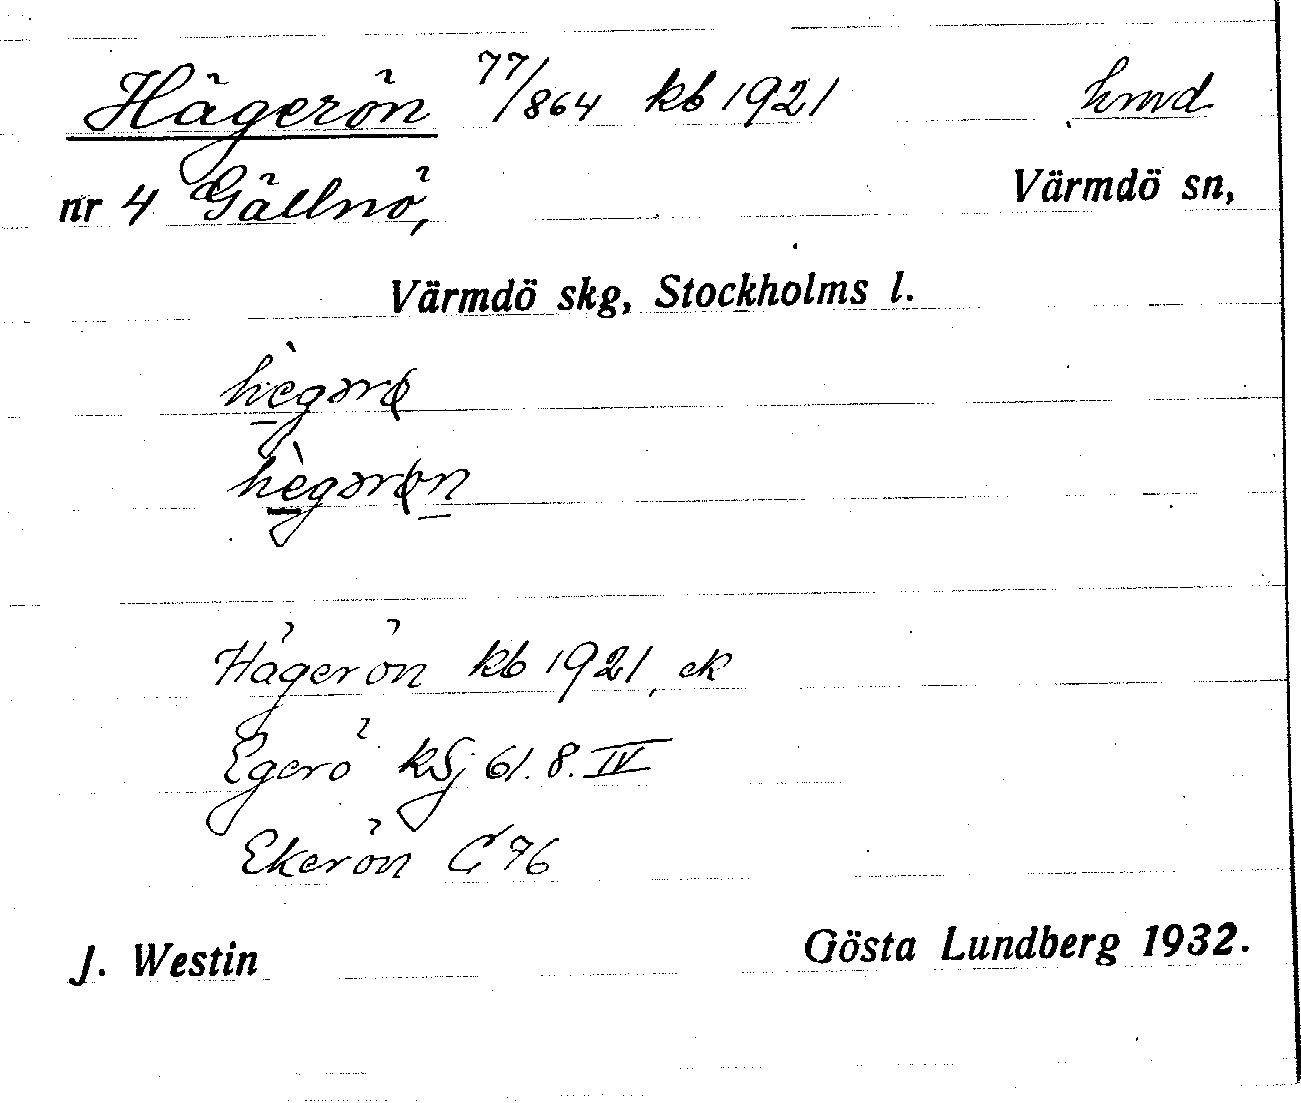 Hägerön 77/864 kb 1921 hmd
nr 4 Gällnö, Värmdö sn,
Värmdö skg, Stockholms l.
hègərø
hègərøn
Hägerön kb 1921, ek
Egerö kSj 61. 8. IV
Ekerön C 76
J. Westin Gösta Lundberg 1932.